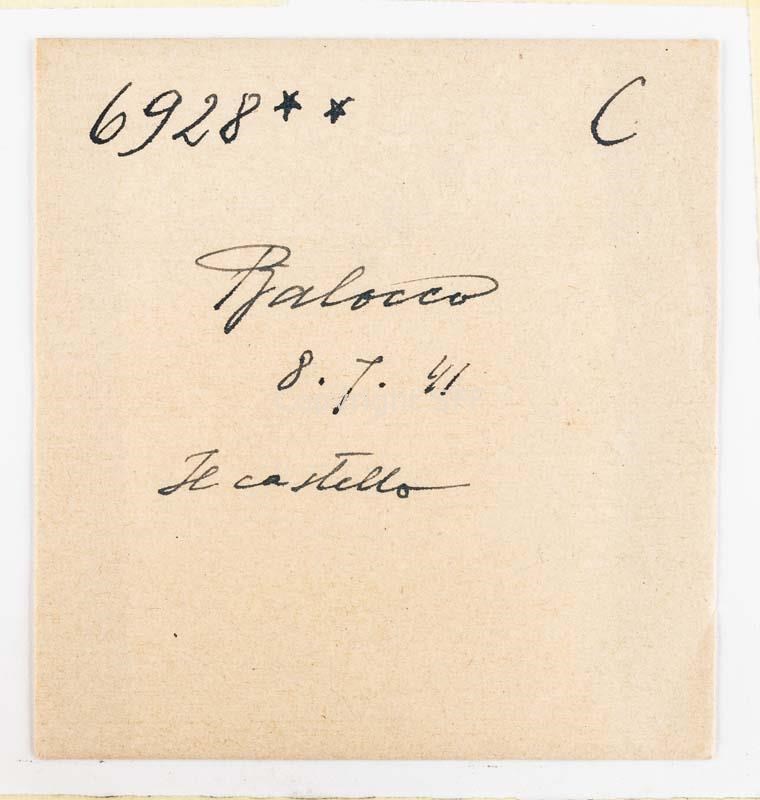 6928** C
Balocco
8.7.41
Il castello